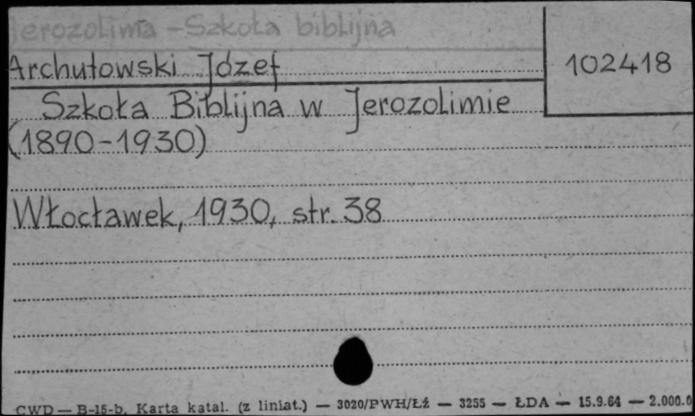 Jerozolima - Szkoła biblijna
Archutowski Józef
102418
Szkoła Biblijna w Jerozolimie
(1890-1930)
Włocławek, 1930, str. 38
CWD — B-15-b. Karta katal. (z liniat.) — 3020/PWH/Łź — 3255 — ŁDA — 15.9.64 — 2.000.0